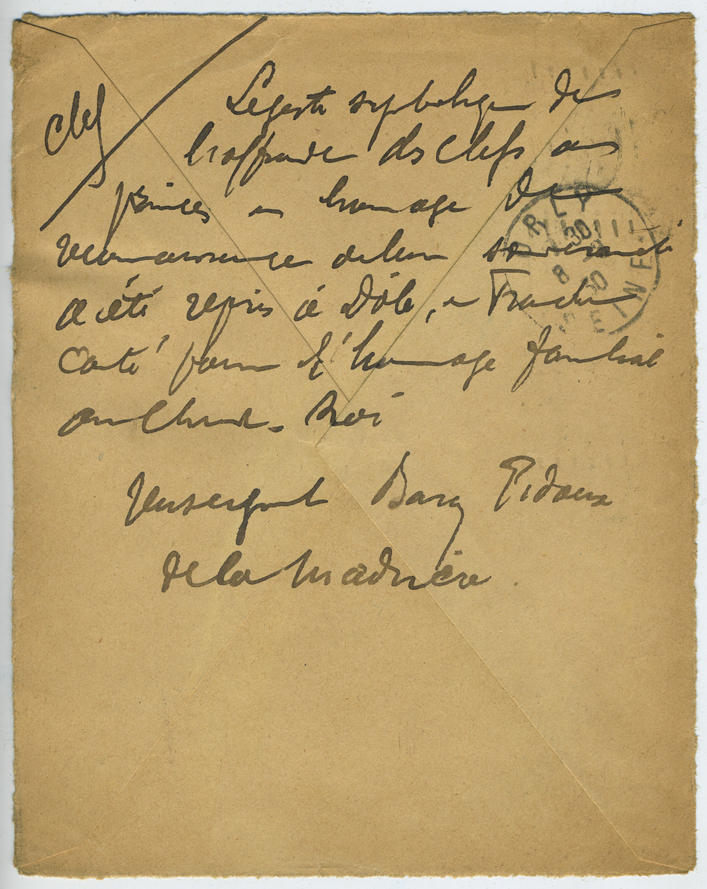 clef
Le geste symbolique de
l'offrande des clefs aux
princes en homage de
reconnaissance de leur souveraineté
a été repris à Dôle, en Franche
Comté pour l'homage familial
au Christ-Roi
renseignt Baron Pidoux
de la Maduère
ORLY
SEINE